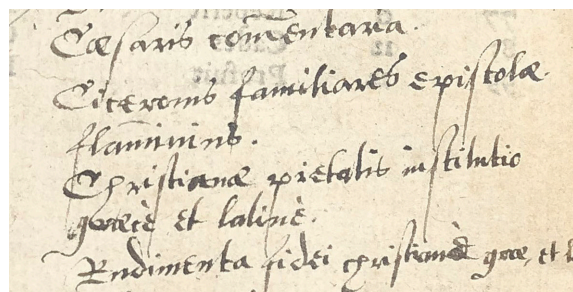 Cæsaris com̄entara.
Ciceronis familiares epistolæ.
flam̄inius.
Christianæ pietatis institutio
græcè et latinè.
Rudimenta fidei christianæ græ, et